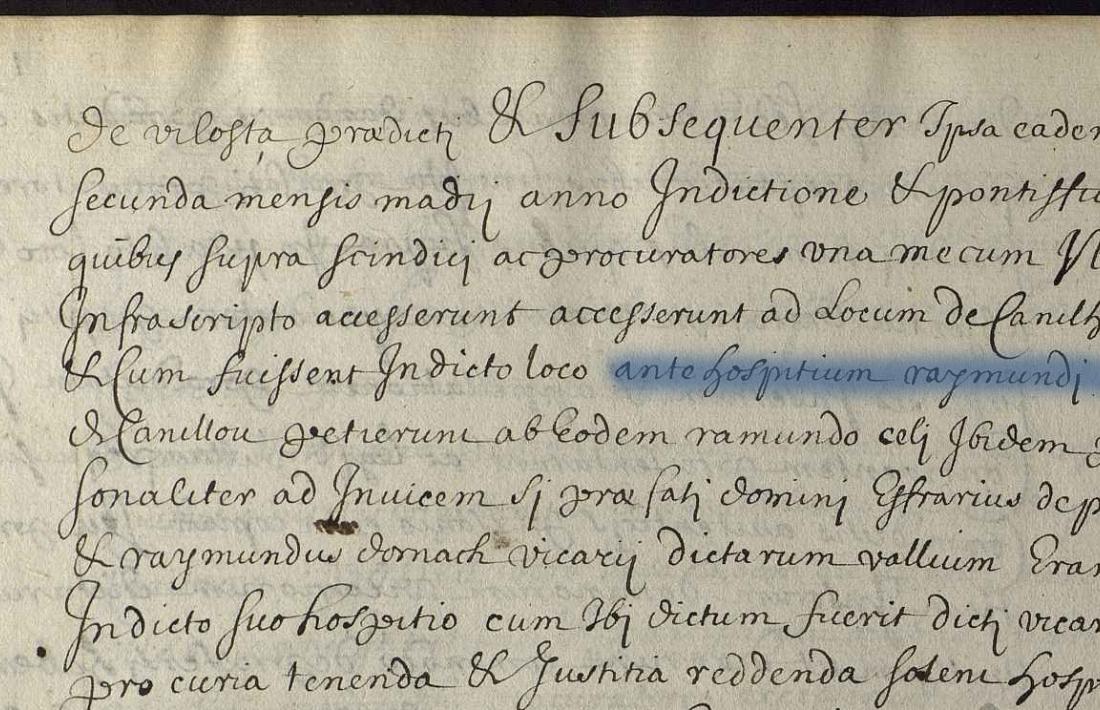 de vilosta prædictj & Subsequenter Ipsa eadem
secunda mensis madij anno Indictione & pontiffic
quibus supra scindicj ac procuratores vna mecum
Infrascripto accesserunt accesserunt ad Locum de Canilh
& Cum fuissent Indicto loco ante hospitium raymundj
& Canillou petierunt ab Eodem ramundo celj Ibidem
sonaliter ad Inuicem sj præfatj dominj Effrarius de p
& raymundus domach vicarij dictarum vallium Eran
Indicto suo hospitio cum Ibj dictum fuerit dictj vicar
pro curia tenenda & Justitia reddenda solent hosp